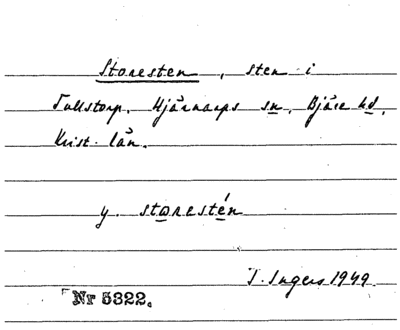 Storesten, sten i
Tullstorp, Hjärnarps sn, Bjäre hd,
Krist. län.
y. støresté́n
I. Ingers 1949
Nr 5322.